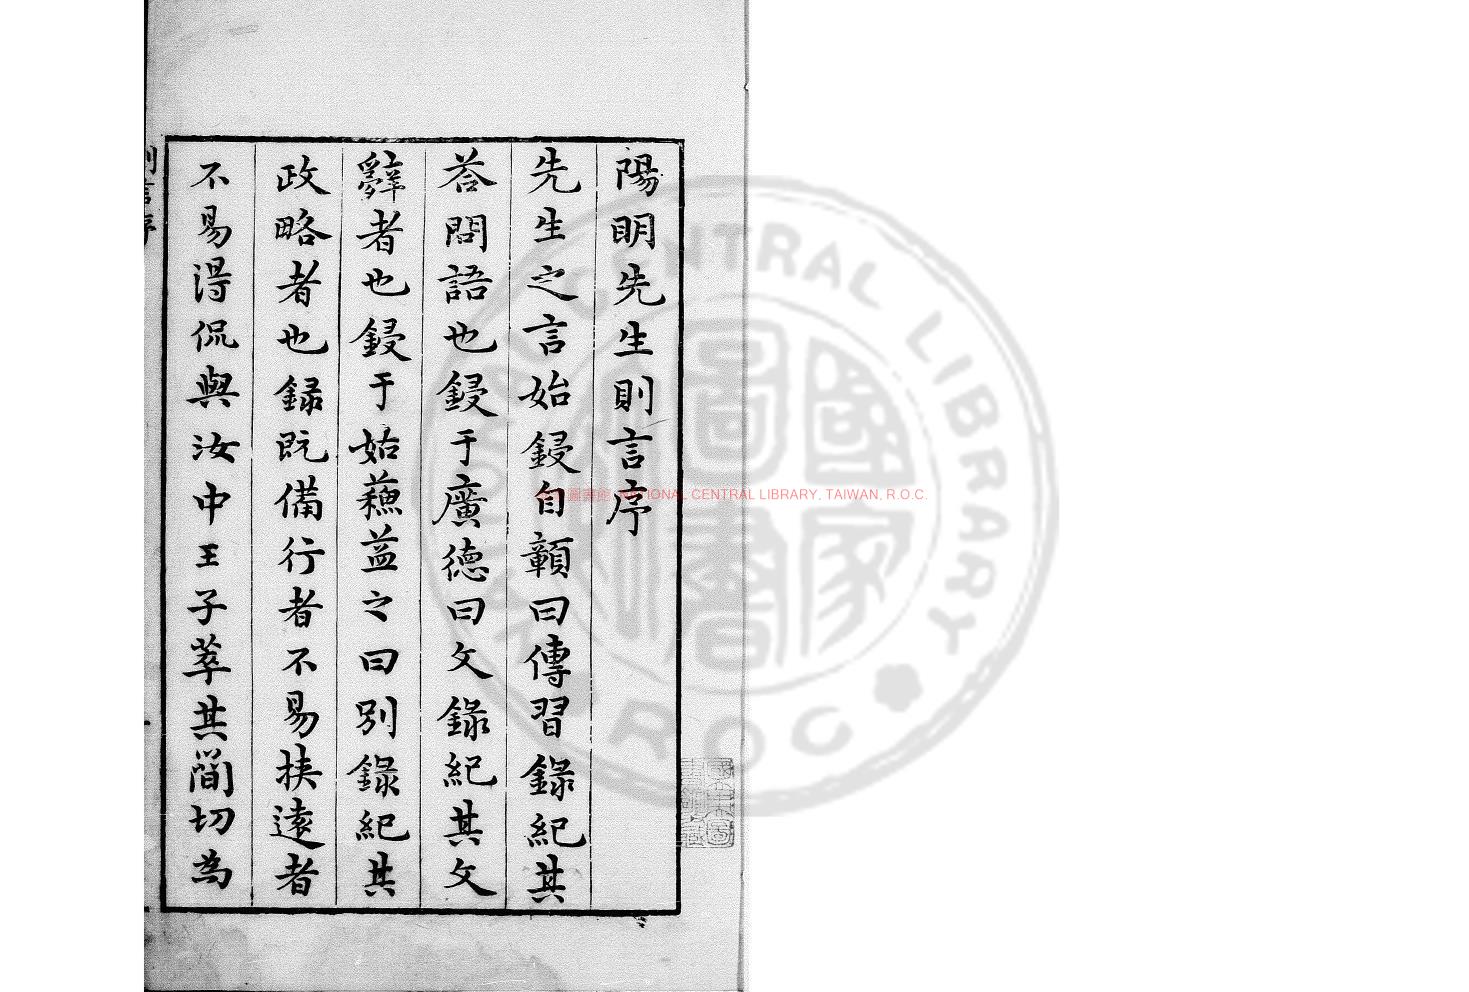 陽明先生則言序
先生之言始鋟自贑曰傳習錄紀其
荅問語也鋟于廣德曰文錄紀其文
辭者也鋟于姑蘓益之曰別錄紀其
政略者也録既備行者不易挾遠者
不易得侃與汝中王子萃其簡切為
則言序
NATIONAL CENTRAL LIBRARY, TAIWAN, R.O.C.
CENTRAL LIBRARY
ROC
國家圖書